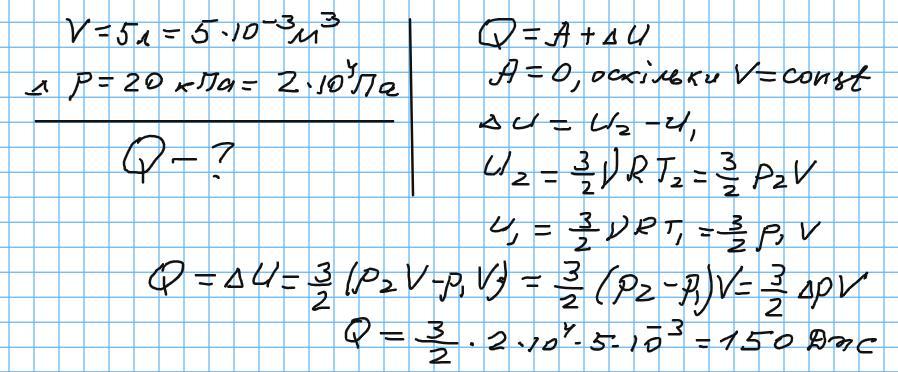 V = 5л = 5·10⁻³м³
Δ p = 20 кПа = 2·10⁴Па
Q - ?
Q = A + ΔU
A = 0, оскільки V = const
ΔU = U₂ - U₁
U₂ = 3/2 νRT₂ = 3/2 p₂V
U₁ = 3/2 νRT₁ = 3/2 p₁V
Q = ΔU = 3/2 (p₂V - p₁V) = 3/2 (p₂ - p₁)V = 3/2 ΔpV
Q = 3/2 · 2·10⁴·5·10⁻³ = 150 Дж